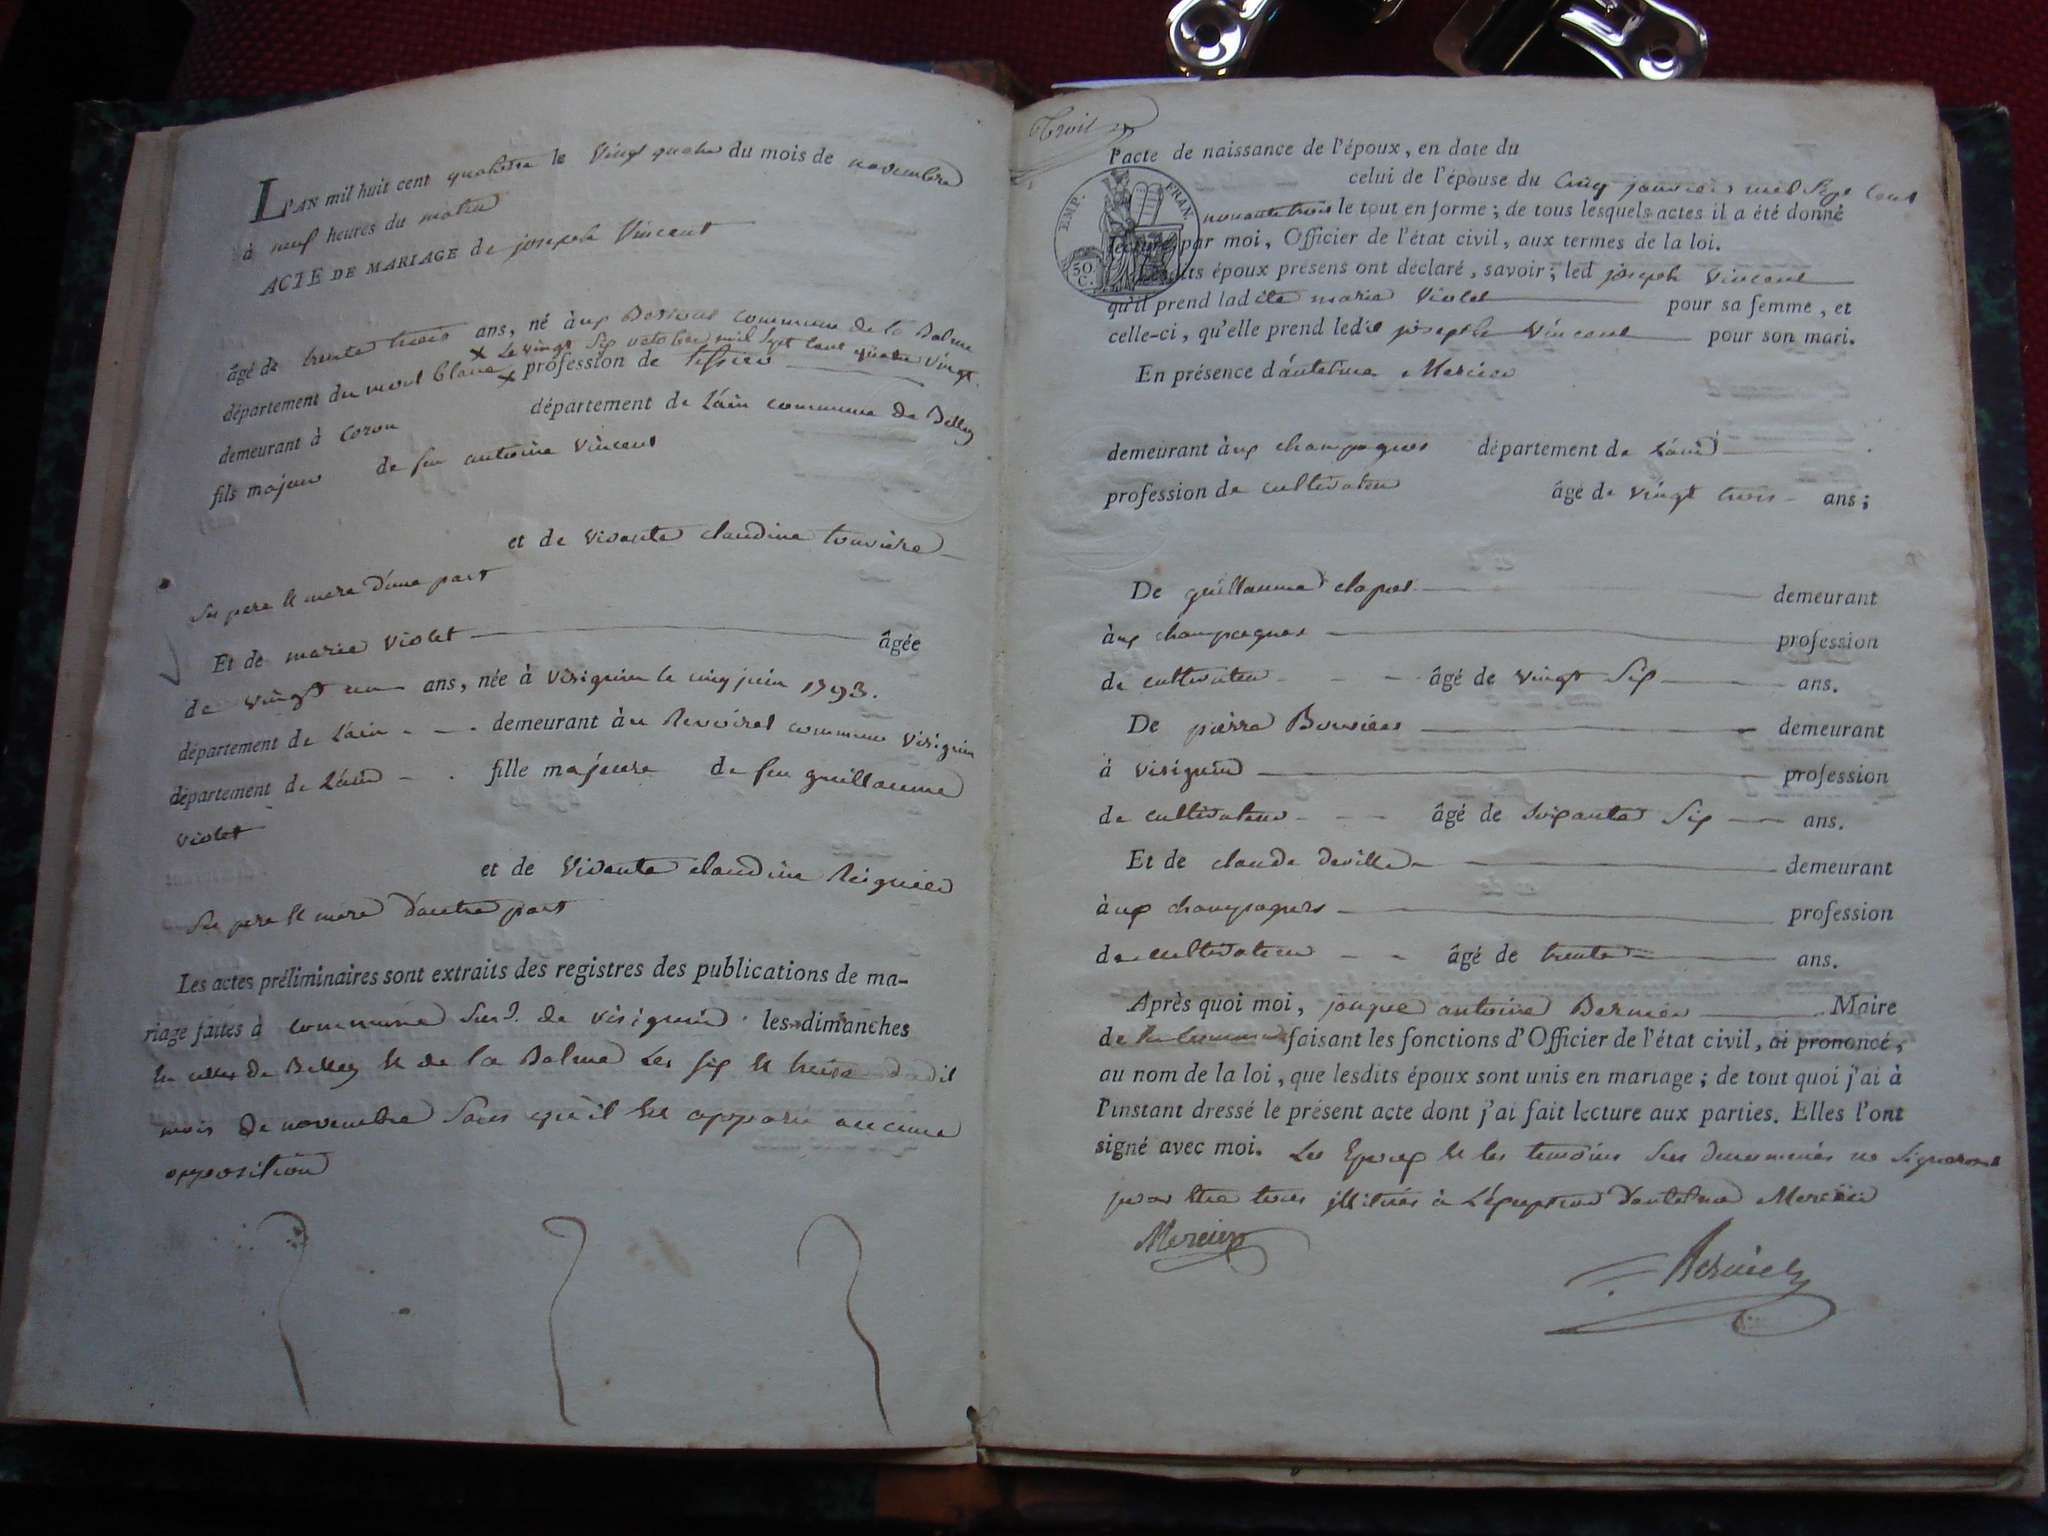 L'AN mil huit cent quatorze le vingt quatre du mois de novembre
à neuf heures du matin
ACTE DE MARIAGE de joseph Vincent
âgé de trente trois ans, né aux commune de la Balme
x Le vingt six octobre mil sept cent quatre vingt
département du mont blanc x profession de tissier
demeurant à Coron département de L'ain commune de Belley
fils majeur de feu antoine Vincent
et de vivante claudine
ses pere et mere d'une part
Et de marie Violet âgée
de vingt un ans, née à Virignin le cinq juin 1793.
département de L'ain demeurant au commune Virignin
département de L'ain fille majeure de feu guillaume
violet
et de Vivante claudine Reignier
ses pere et mere d'autre part
Les actes préliminaires sont extraits des registres des publications de ma-
riage faites à commune Susd. de virignin les dimanches
En celles de Belley et de la Balme Les six et treize dudit
mois de novembre Sans qu'il Est apparu aucune
opposition
Troit
l'acte de naissance de l'époux, en date du
celui de l'épouse du Cinq janvier mil Sept Cent
nonante trois le tout en forme; de tous lesquels actes il a été donné
lecture par moi, Officier de l'état civil, aux termes de la loi.
EMP. FRAN.
50 C.
Lesdits époux présens ont déclaré, savoir; led joseph Vincent
qu'il prend ladite marie Violet pour sa femme, et
celle-ci, qu'elle prend ledit joseph Vincent pour son mari.
En présence d'antelme Mercier
demeurant aux champagnes département de L'ain
profession de cultivateur âgé de vingt trois ans;
De guillaume demeurant
aux champagnes profession
de cultivateur âgé de vingt Six ans.
De pierre demeurant
à virignin profession
de cultivateur âgé de soixante Six ans.
Et de claude deville demeurant
aux champagnes profession
de cultivateur âgé de trente ans.
Après quoi moi, jacque antoine Bernier Maire
de faisant les fonctions d'Officier de l'état civil, ai prononcé,
au nom de la loi, que lesdits époux sont unis en mariage; de tout quoi j'ai à
l'instant dressé le présent acte dont j'ai fait lecture aux parties. Elles l'ont
signé avec moi. Les Epoux et les temoins Sus denommés ne Signeront
pour Etre tous illitirés à L'exeption d'antelme Mercier
Mercier
Bernier